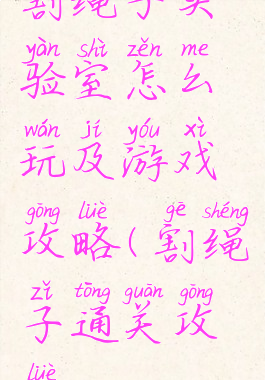 割绳子实
yàn shì zěn me
验室怎么
wán jí yóu xì
玩及游戏
gōng lüè gē shéng
攻略(割绳
zǐ tōng guān gōng
子通关攻
lüè